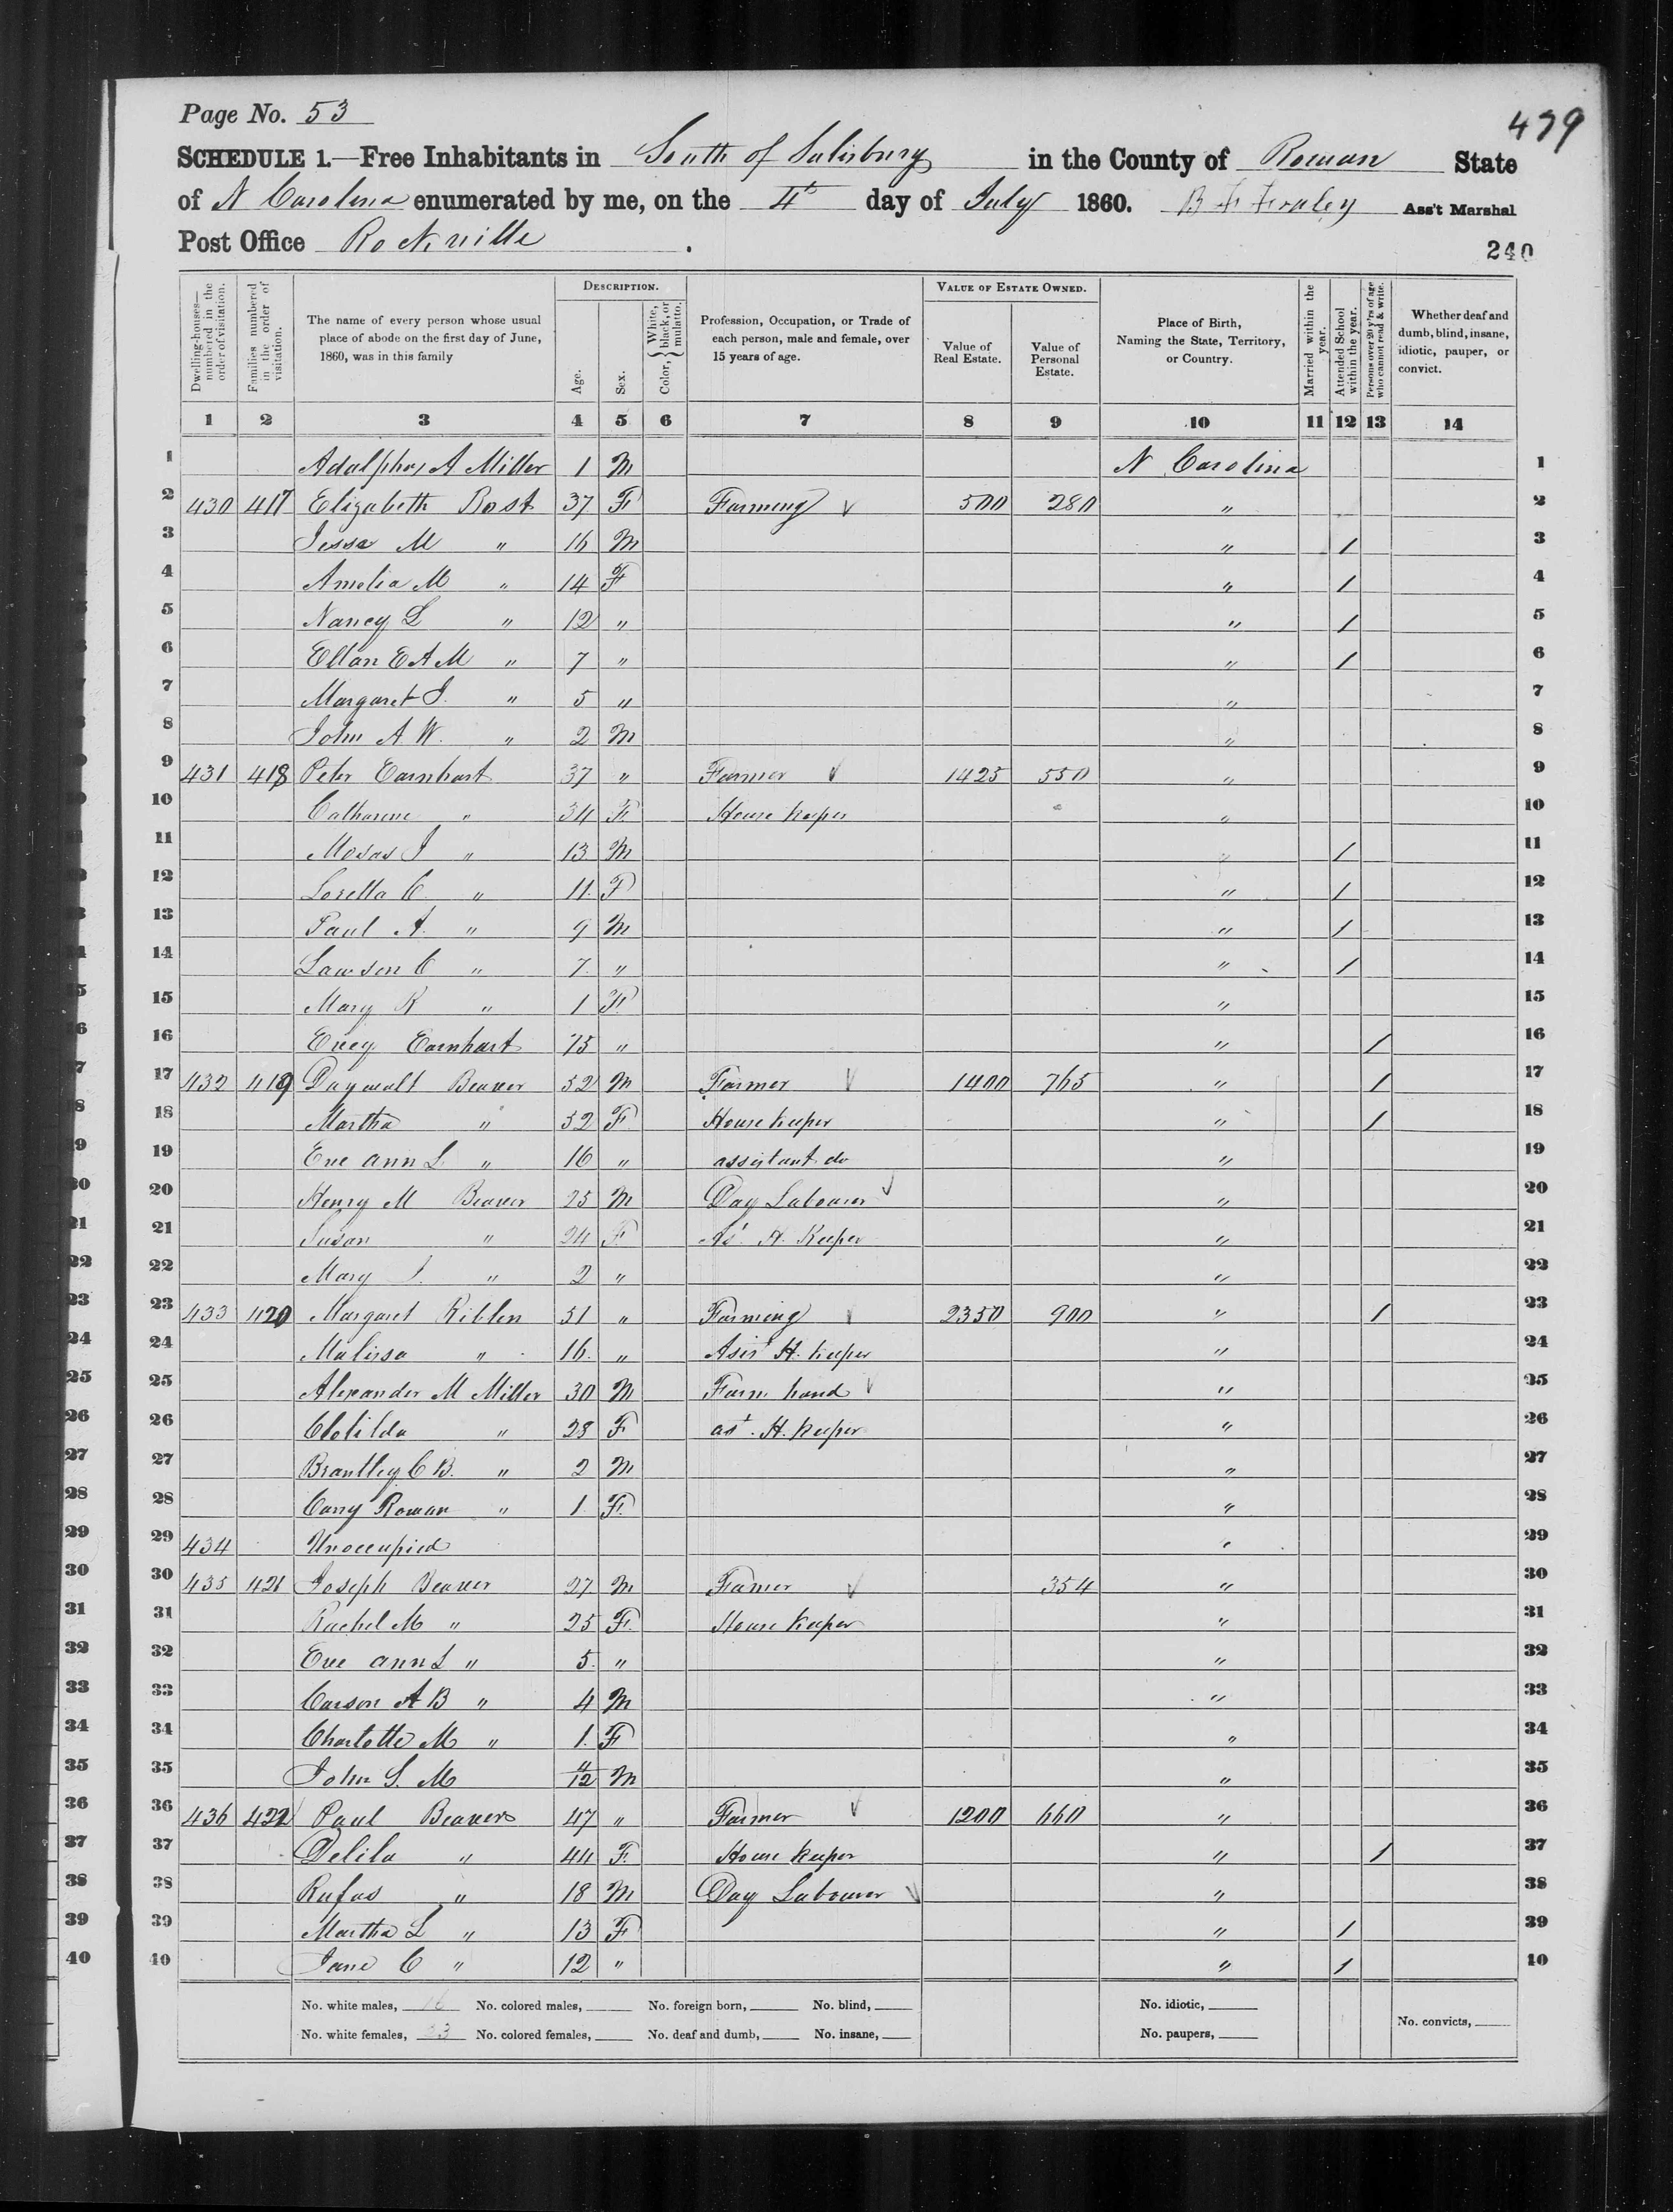 Page No. 53
479
SCHEDULE 1.—Free Inhabitants in South of Salisbury in the County of Rowan State
of N Carolina enumerated by me, on the 4th day of July 1860. B F Fraley Ass't Marshal
Post Office Rockville . 240
Dwelling-houses—numbered in the order of visitation. Families numbered in the order of visitation. The name of every person whose usual place of abode on the first day of June, 1860, was in this family Description. Age. Sex. Color, { White, black, or mulatto. Profession, Occupation, or Trade of each person, male and female, over 15 years of age. Value of Estate Owned. Value of Real Estate. Value of Personal Estate. Place of Birth, Naming the State, Territory, or Country. Married within the year. Attended School within the year. Persons over 20 y'rs of age who cannot read & write. Whether deaf and dumb, blind, insane, idiotic, pauper, or convict.
1 2 3 4 5 6 7 8 9 10 11 12 13 14
1 Adolphus A Miller 1 M N Carolina 1
2 430 417 Elizabeth Rost 37 F Farming 500 280 " 2
3 Jesse M " 16 M " / 3
4 Amelia M " 14 F " / 4
5 Nancy L " 12 " " / 5
6 Ellan E A M " 7 " " / 6
7 Margaret J. " 5 " " 7
8 John A W. " 2 M " 8
9 431 418 Peter Earnhart 37 " Farmer 1425 550 " 9
10 Catharine " 34 F House keeper " 10
11 Moses J " 13 M " / 11
12 Loretta C " 11 F " / 12
13 Paul A. " 9 M " / 13
14 Lawson C " 7 " " / 14
15 Mary R " 1 F " 15
16 Evey Earnhart 75 " " / 16
17 432 419 Daywalt Beaver 52 M Farmer 1400 765 " / 17
18 Martha " 52 F House keeper " / 18
19 Eve ann L " 16 " assistant do " 19
20 Henry M Beaver 25 M Day Labourer " 20
21 Susan " 24 F As. H. Keeper " 21
22 Mary J. " 2 " " 22
23 433 420 Margaret Riblen 51 " Farming 2350 900 " / 23
24 Malissa " 16 " Asist H. keeper " 24
25 Alexander M Miller 30 M Farm hand " 25
26 Clotilda " 28 F ast. H. keeper " 26
27 Brantley C B. " 2 M " 27
28 Carry Rowan " 1 F " 28
29 434 Unoccupied " 29
30 435 421 Joseph Beaver 27 M Farmer 354 " 30
31 Rachel M " 25 F House keeper " 31
32 Eve ann L " 5 " " 32
33 Carson A B " 4 M " 33
34 Charlotte M " 1 F " 34
35 John S. M 4/12 M " 35
36 436 422 Paul Beavers 47 " Farmer 1200 660 " 36
37 Delila " 44 F House keeper " / 37
38 Rufus " 18 M Day Labourer " 38
39 Martha L " 13 F " / 39
40 Jane C " 12 " " / 40
No. white males, 16 No. colored males, No. foreign born, No. blind, No. idiotic,
No. white females, 23 No. colored females, No. deaf and dumb, No. insane, No. paupers, No. convicts,